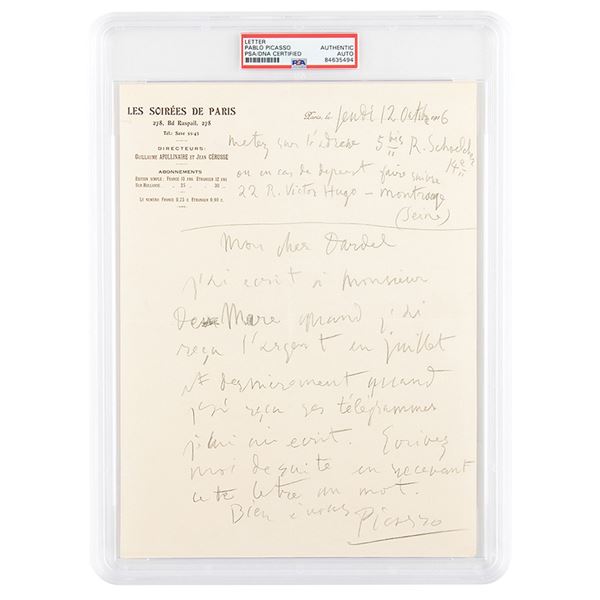 LETTER
PABLO PICASSO
PSA/DNA CERTIFIED
AUTHENTIC
AUTO
84635494
PSA
LES SOIRÉES DE PARIS
278, Bd Raspail, 278
Tél: Saxe
DIRECTEURS:
GUILLAUME APOLLINAIRE et JEAN CÉRUSSE
ABONNEMENTS
ÉDITION SIMPLE: FRANCE 10 FRS. ÉTRANGER 12 FRS
SUR HOLLANDE . — 25 . — 30 .
LE NUMÉRO FRANCE 0,75 C. ÉTRANGER 0,90 C.
Paris, le jeudi 12 Octobre
metez sur l'adrese 5 bis R. Schoelcher
14e
ou en cas de depart faire suivre
22 R. Victor Hugo — montrouge
(Seine)
Mon cher Dardel
j'ai ecrit à monsieur
De Mare quand j'ai
reçu l'argent en juillet
et dernierement quand
j'ai reçu ses télégrammes
je lui ai ecrit. Ecrivez
moi de suite en recevant
cete letre un mot.
Bien à vous Picasso